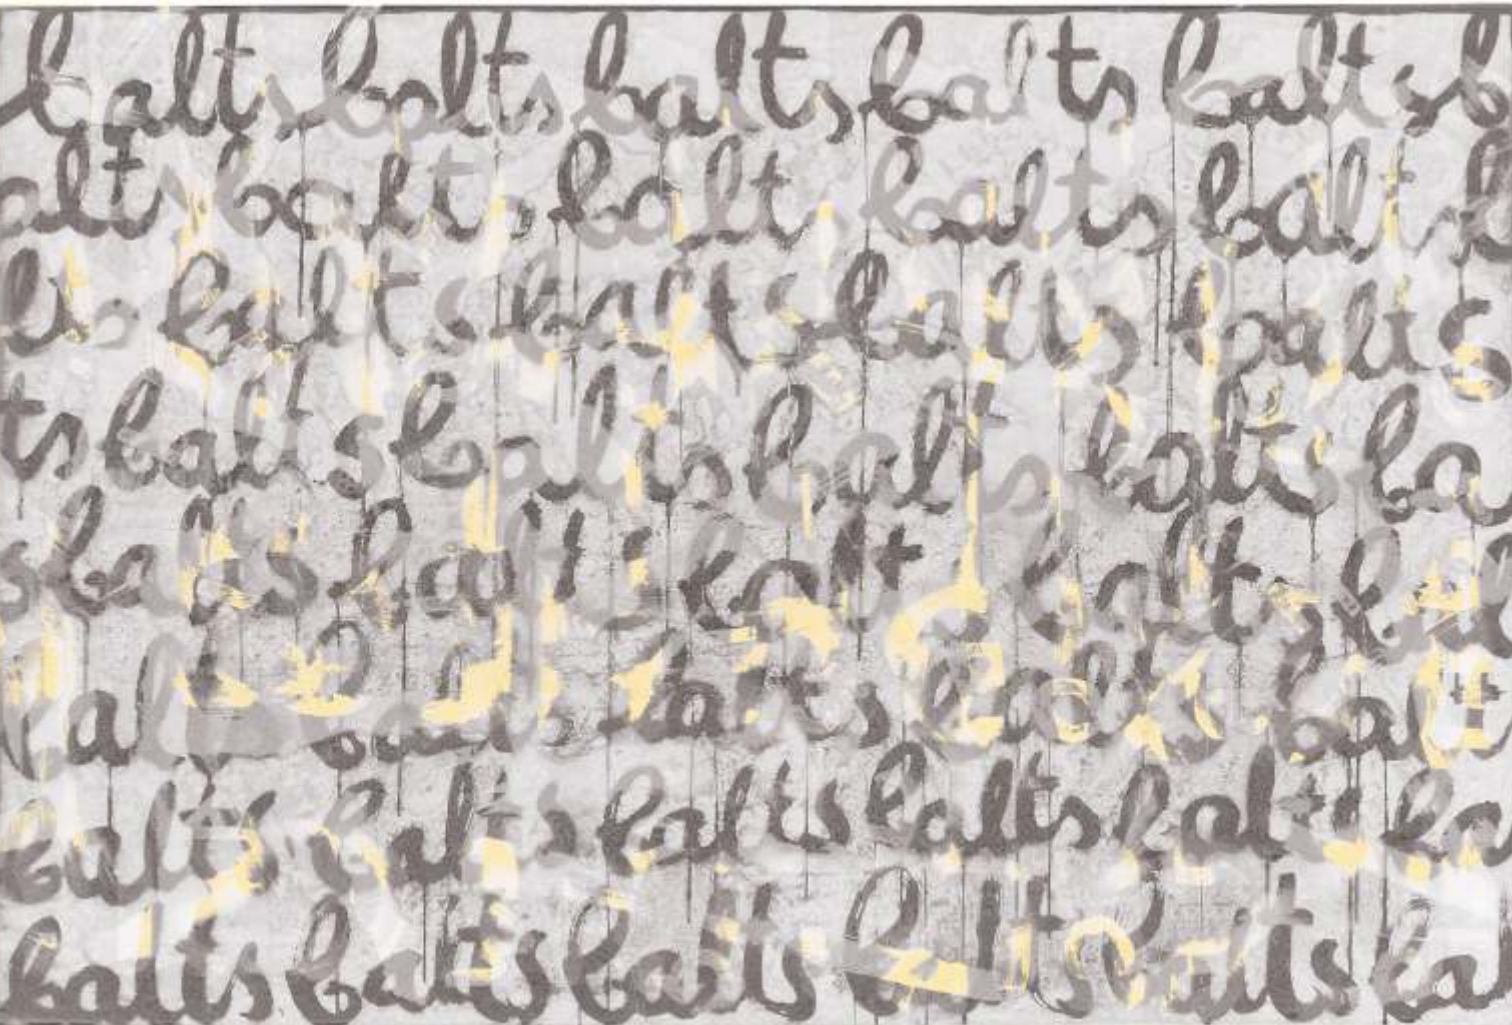 balts balts balts balts balts b
alts balts balts balts balts b
lts balts balts balts balts
ts balts balts balts balts ba
s balts balts balt balts bal
balts balts balts balts balts
balts balts balts balts balts ba
balts balts balts balts balts bal